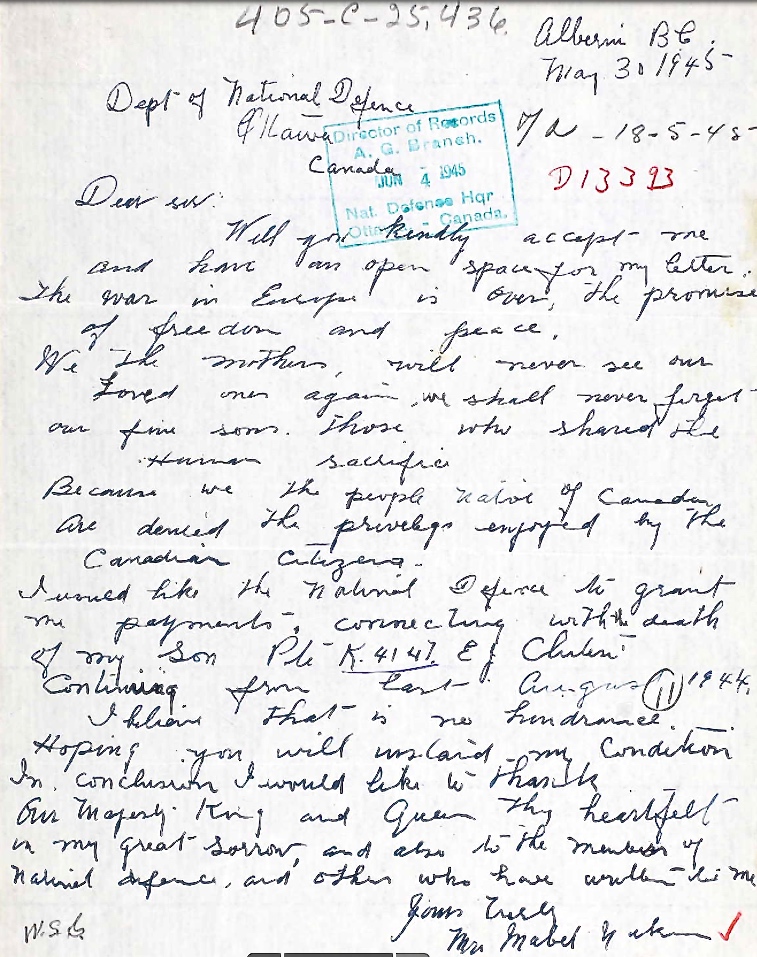 405-C-25,436.
Alberni B.C.
May 30 1945
Dept of National Defence
Ottawa
Canada
Director of Records
A. G. Branch.
JUN 4 1945
Nat. Defense Hqr
Ottawa - Canada.
- 18-5-45
D13393
Dear sir:
Will you kindly accept me
and have an open space for my letter.
The war in Europe is over, the promise
of freedom and peace.
We the mothers, will never see our
Loved ones again, we shall never forget
our fine sons. Those who shared the
Human sacrifice
Because we the people native of Canada
are denied the privelege enjoyed by the
Canadian Citizens.
I would like the National Defence to grant
me payments, connecting with the death
of my Son Pte K. 4147. E J
Continuing from last August 11 1944.
I believe that is no hindrance.
Hoping you will my Condition
In conclusion I would like to thank
Our Majesty King and Queen thy heartfelt
in my great sorrow, and also to the members of
National defence, and others who have written to me
Yours Truly
Mrs Mabel
W.S.G